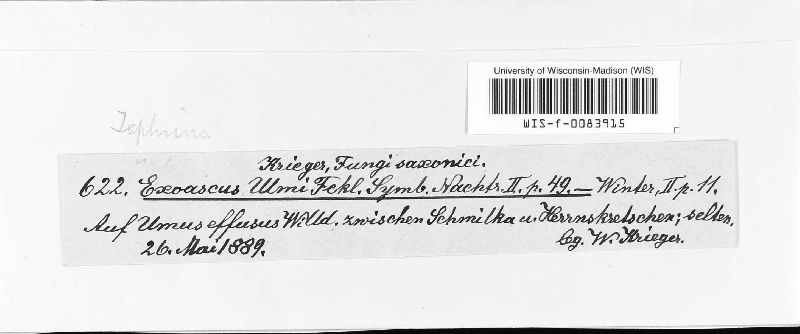 University of Wisconsin-Madison (WIS)
WIS-f-0083915
Taphrina
Krieger, Fungi saxonici.
622. Exoascus Ulmi Fckl. Symb. Nachtr. II. p. 49. — Winter, II. p. 11.
Auf Umus effusus Willd. zwischen Schmilka u. Herrnskretschen; selten.
26. Mai 1889. lg. W. Krieger.